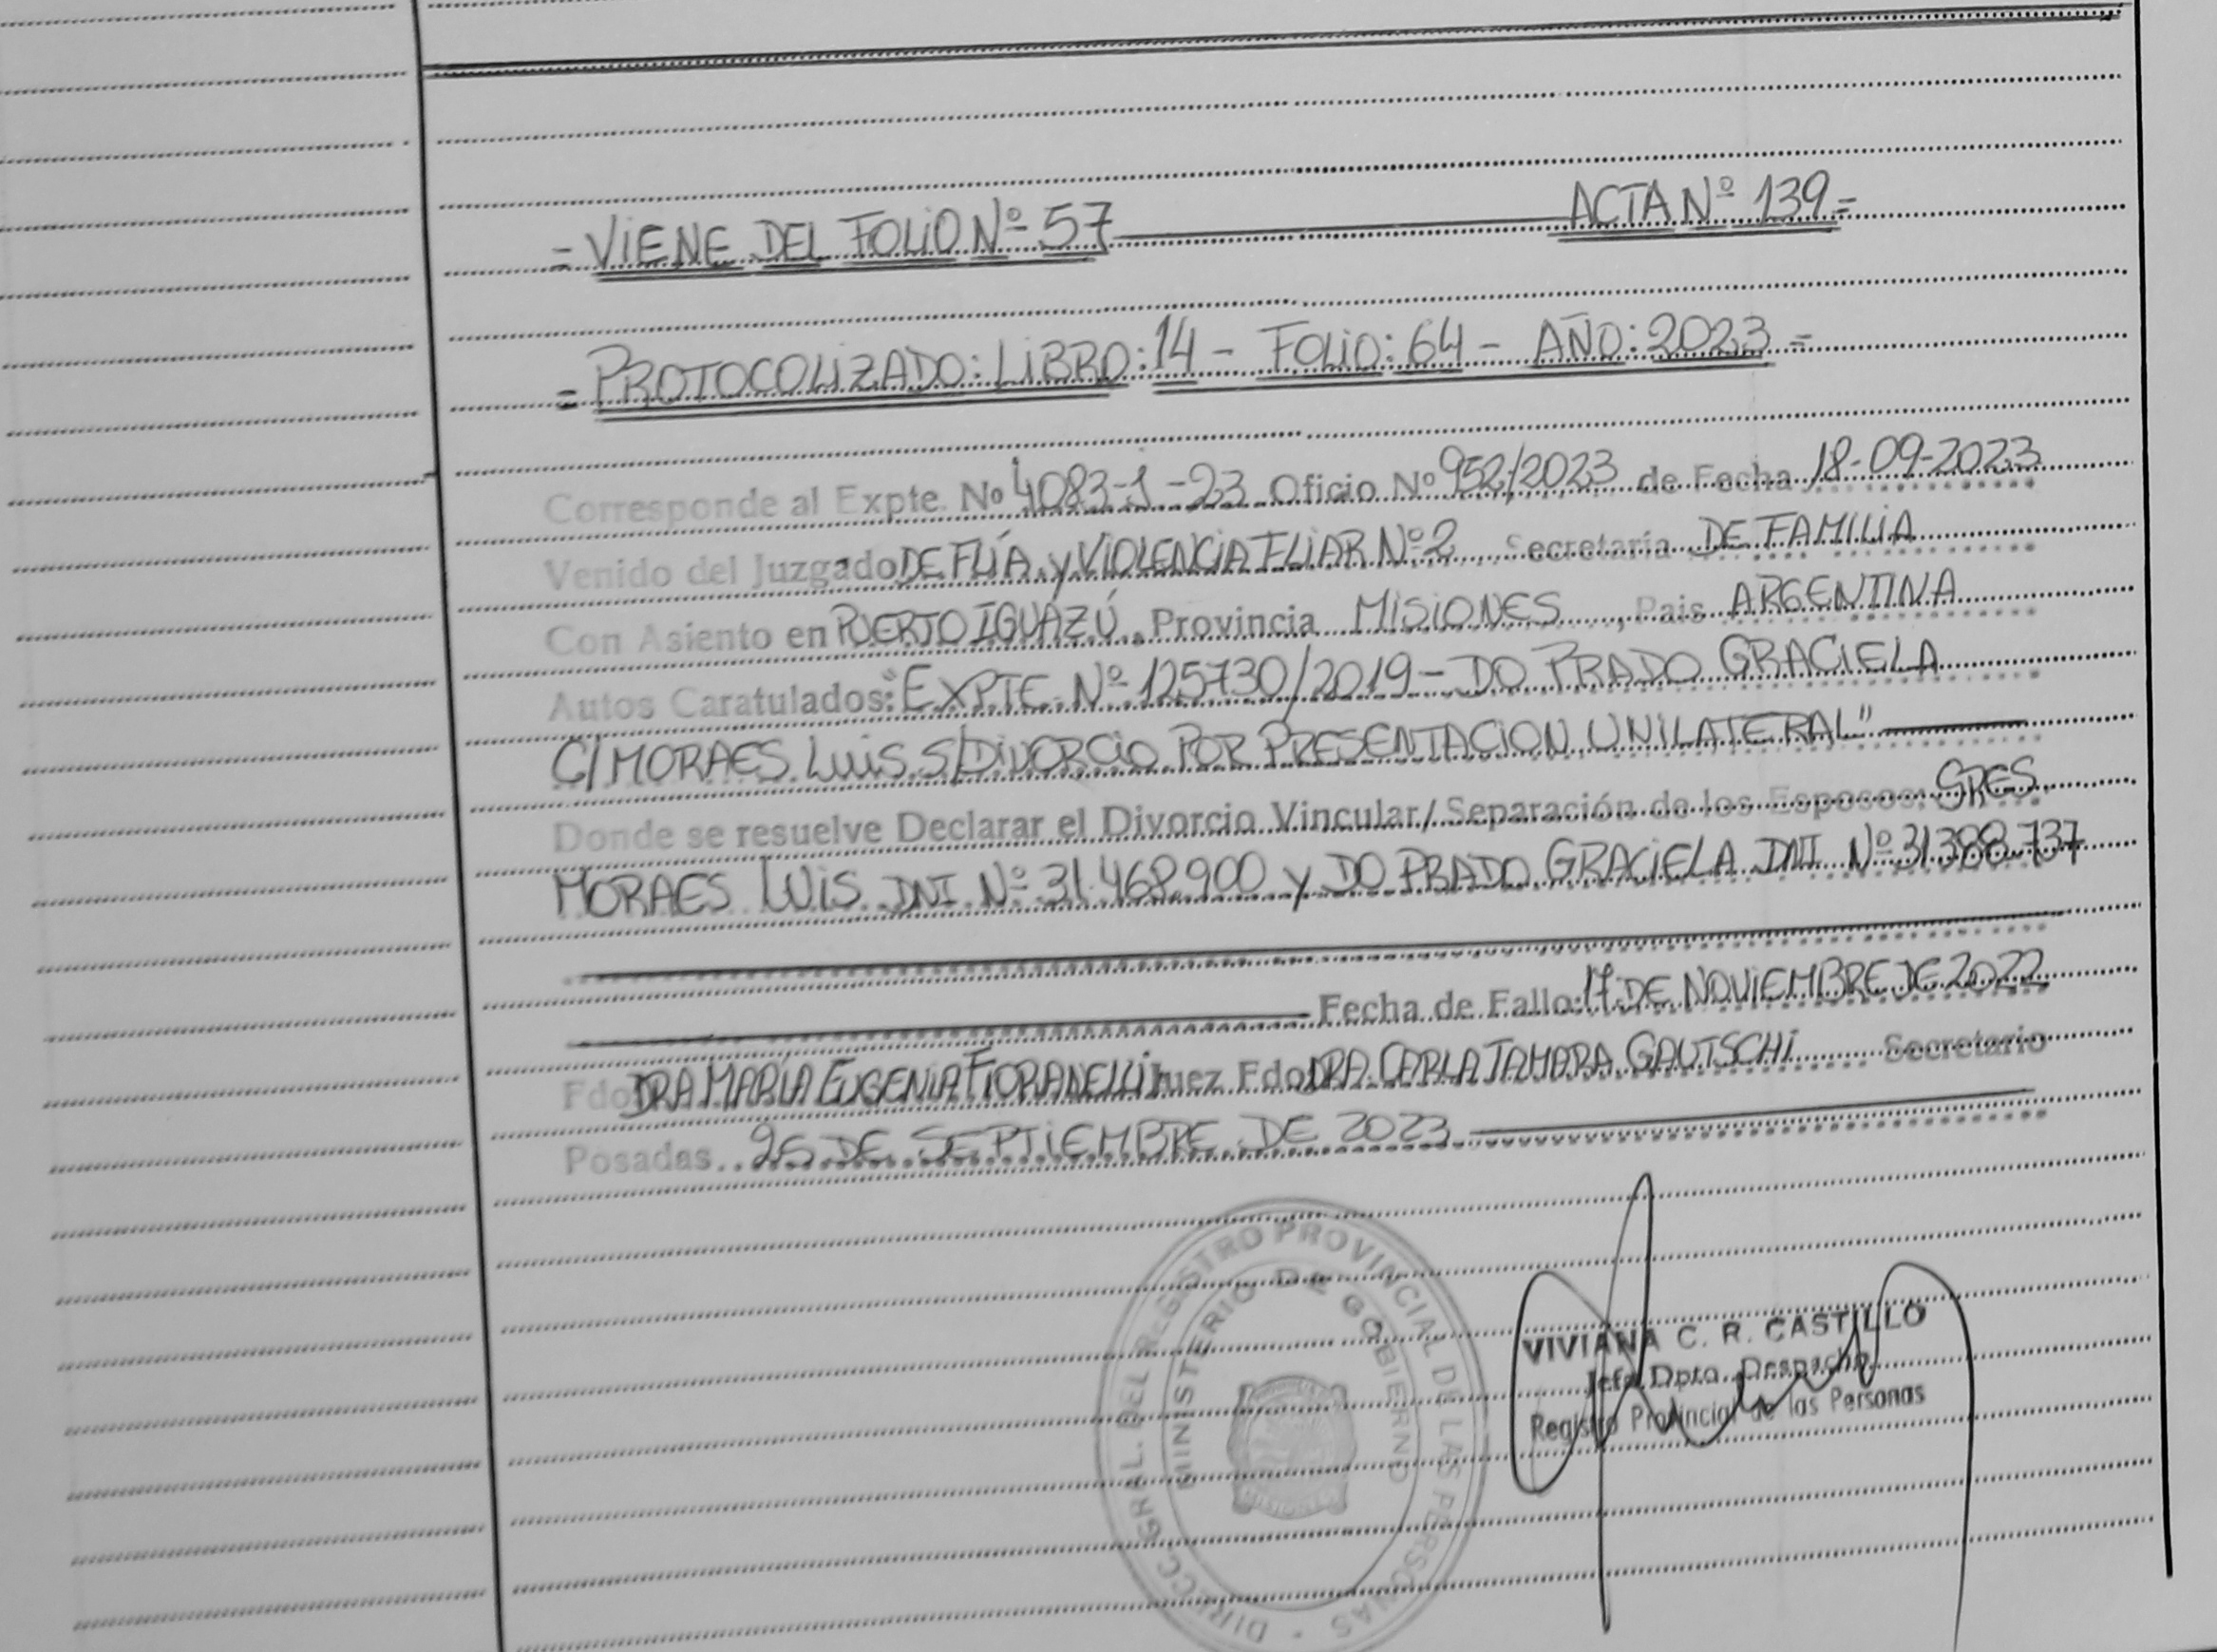 = VIENE DEL FOLIO Nº 57 ACTA Nº 139 =
= PROTOCOLIZADO: LIBRO: 14 - FOLIO: 64 - AÑO: 2023 =
Corresponde al Expte. Nº 4083-J-23 Oficio Nº 952/2023 de Fecha 18-09-2023
Venido del Juzgado DE FLÍA. y VIOLENCIA FLIAR Nº 2 Secretaría DE FAMILIA
Con Asiento en PUERTO IGUAZÚ, Provincia MISIONES, Pais ARGENTINA
Autos Caratulados: "EXPTE. Nº 125730/2019 - DO PRADO GRACIELA
C/ MORAES LUIS S/DIVORCIO POR PRESENTACION UNILATERAL"
Donde se resuelve Declarar el Divorcio Vincular/Separación de los Esposos: SRES.
MORAES LUIS DNI Nº 31.468.900 y DO PRADO GRACIELA DNI Nº 31.388.737
Fecha de Fallo: 17 DE NOVIEMBRE DE 2022
Fdo. DRA MARÍA EUGENIA FIORANELLI Juez Fdo. DRA. CARLA TAMARA GAUTSCHI Secretario
Posadas, 25 DE SEPTIEMBRE DE 2023
DIRECC. GRAL. DEL REGISTRO PROVINCIAL DE LAS PERSONAS -
MINISTERIO DE GOBIERNO
MISIONES
VIVIANA C. R. CASTILLO
Jefa Dpto. Despacho
Registro Provincial de las Personas